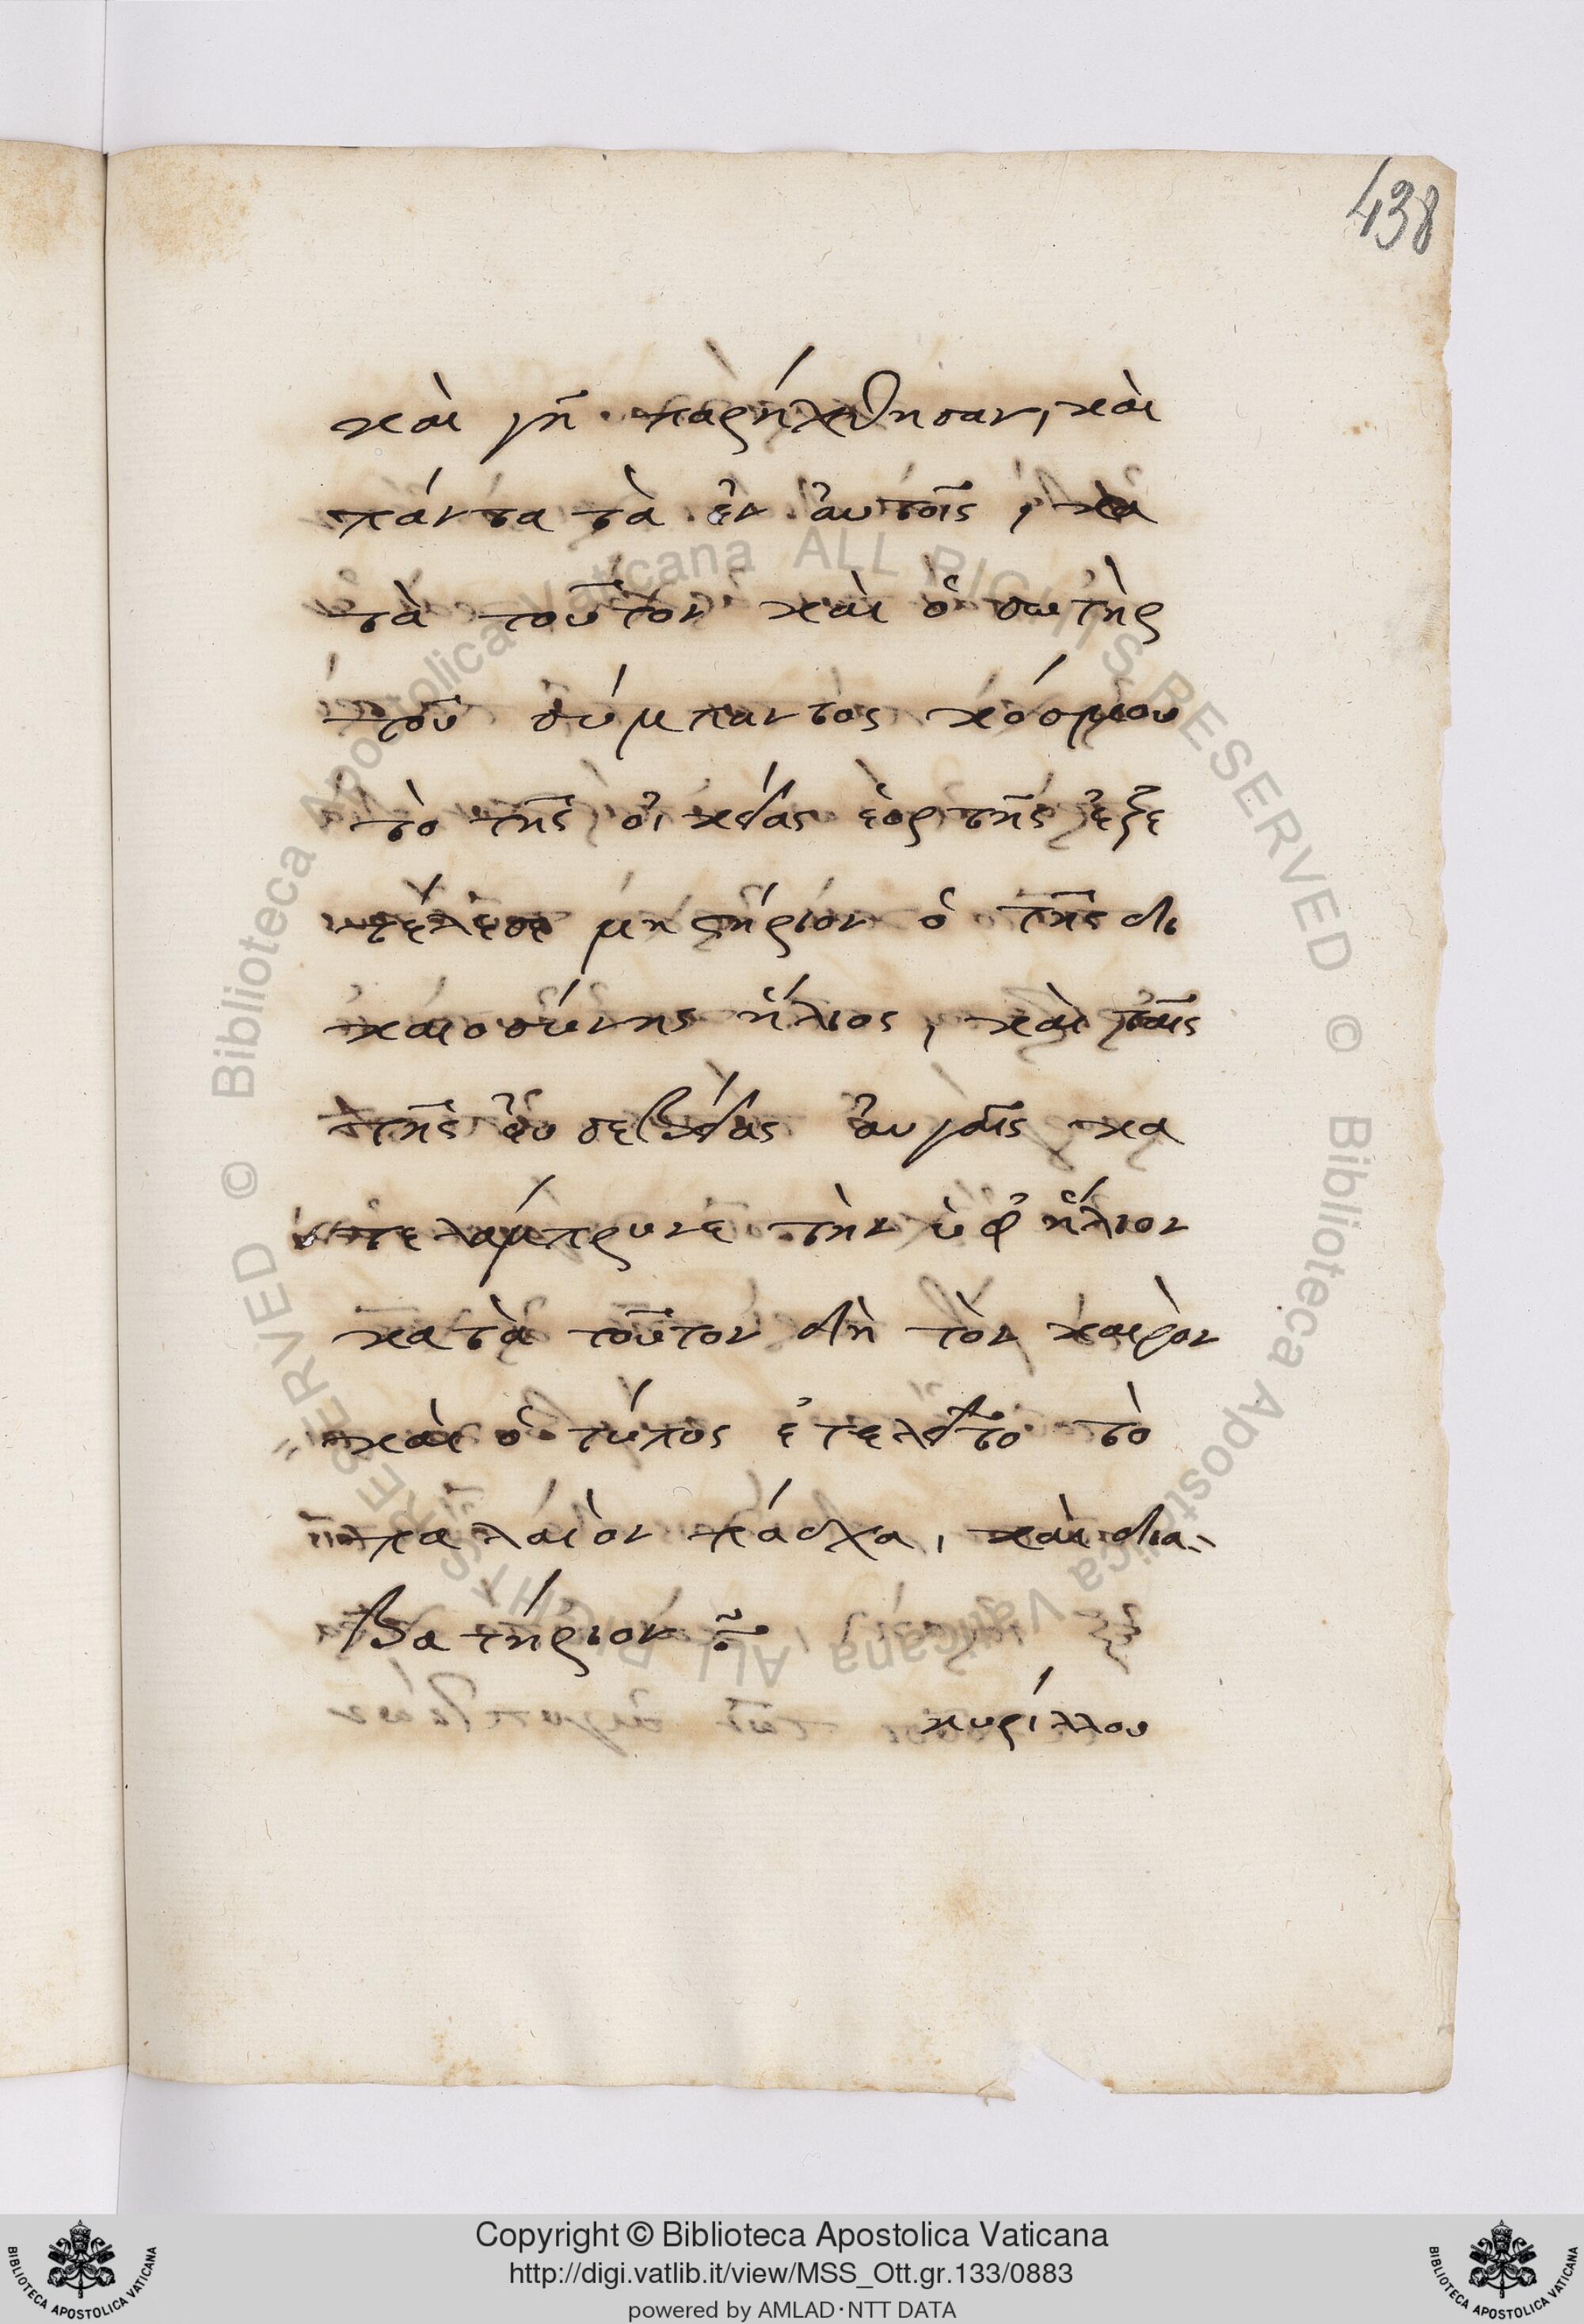 438
καὶ γῆ παρήχθησαν, καὶ
πάντα τὰ ἐν αὐτοῖς, κα
τὰ τοῦτον καὶ ὁ σωτὴρ
τοῦ σύμπαντος κόσμου
τὸ τῆς οἰκείας ἑορτῆς ἐξε
τέλεσε μηστήριον ὁ τῆς δι
καιοσύνης ἥλιος, καὶ ταῖς
τῆς εὐσεβείας αὐγαῖς κα
τελάμπρυνε τὴν ὑφ' ἥλιον
κατὰ τοῦτον δὴ τὸν καιρὸν
καὶ ὁ τύπος ἐτελεῖτο τὸ
παλαιὸν πάσχα, καὶ δια-
βατήριον :~
κυρίλλου
© Biblioteca Apostolica Vaticana ALL RIGHTS RESERVED
© Biblioteca Apostolica Vaticana ALL RIGHTS RESERVED
Copyright © Biblioteca Apostolica Vaticana
http://digi.vatlib.it/view/MSS_Ott.gr.133/0883
powered by AMLAD·NTT DATA
BIBLIOTECA APOSTOLICA VATICANA
BIBLIOTECA APOSTOLICA VATICANA